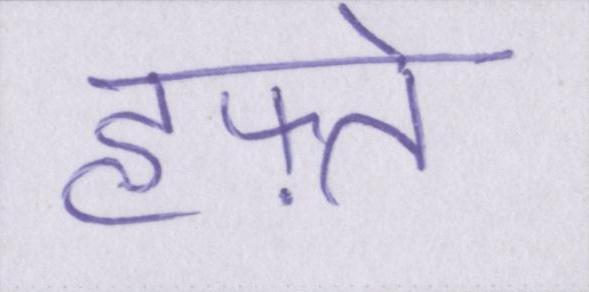 हफ़्ते